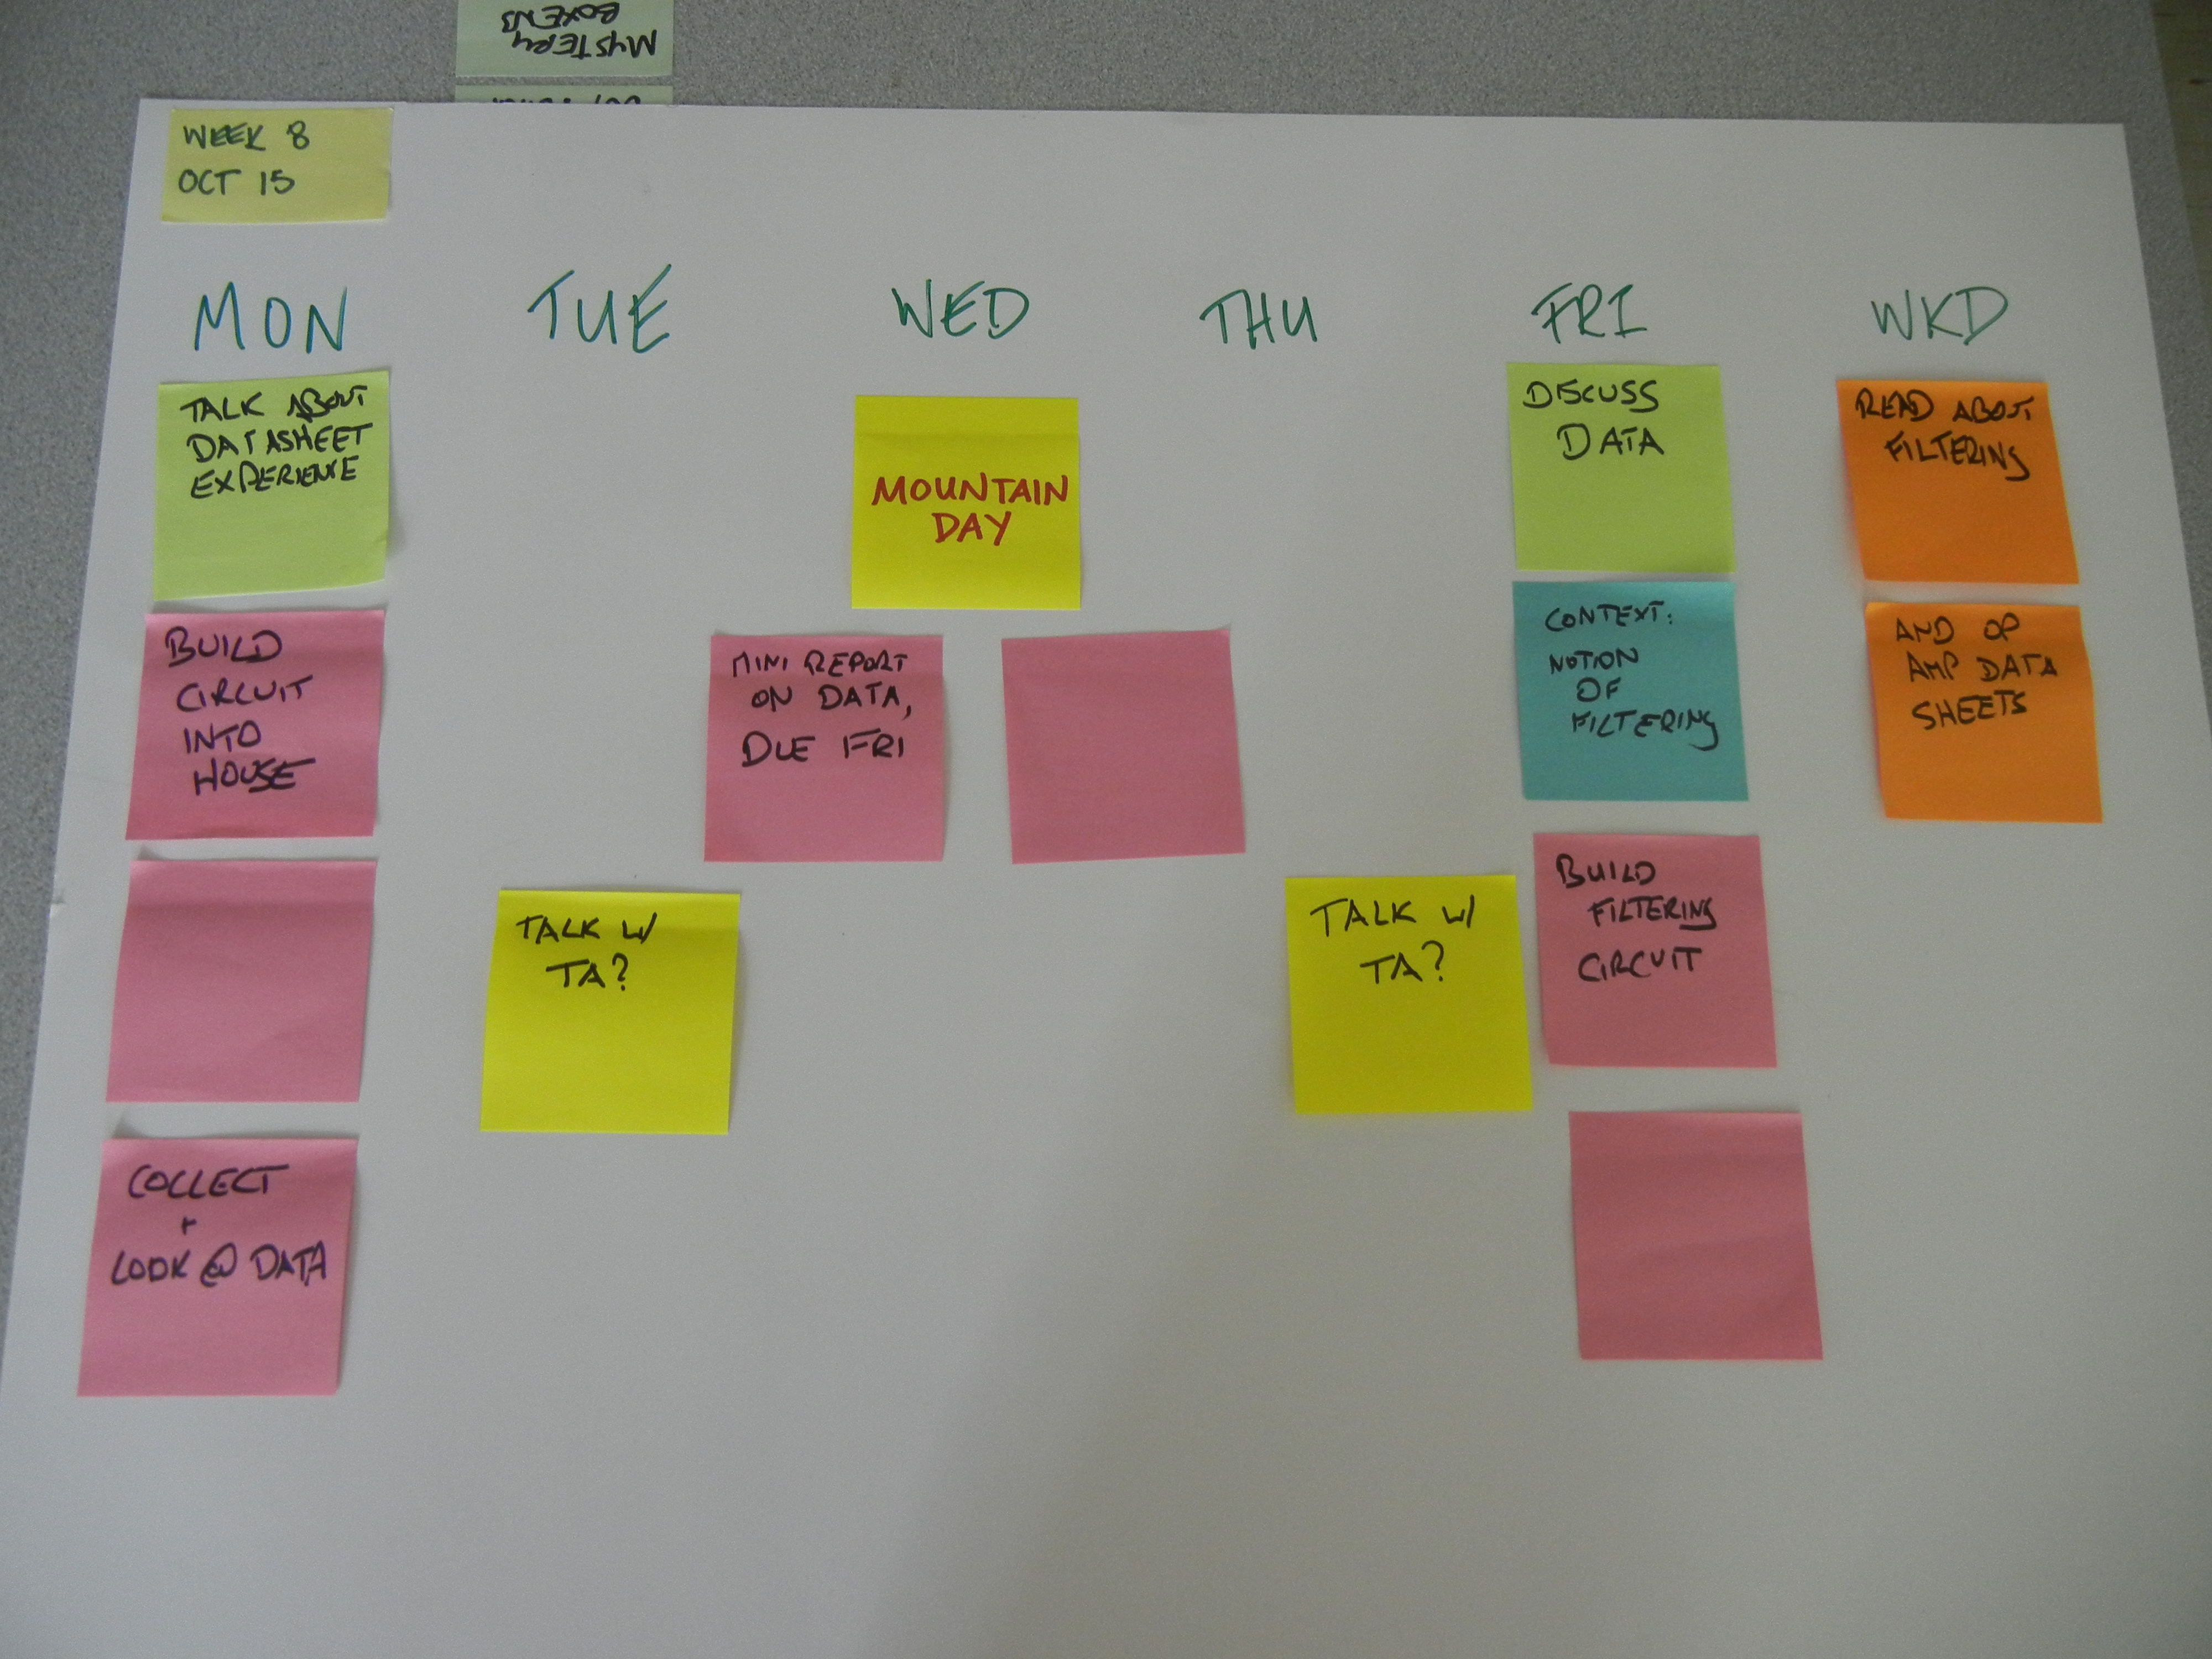 MYSTERY
BOXENS
WEEK 8
OCT 15
MON
TUE
WED
THU
FRI
WKD
TALK ABOUT
DATASHEET
EXPERIENCE
BUILD
CIRCUIT
INTO
HOUSE
COLLECT
+
LOOK @ DATA
TALK W/
TA?
MOUNTAIN
DAY
MINI REPORT
ON DATA,
DUE FRI
TALK W/
TA?
DISCUSS
DATA
CONTEXT:
NOTION
OF
FILTERING
BUILD
FILTERING
CIRCUIT
READ ABOUT
FILTERING
AND OP
AMP DATA
SHEETS